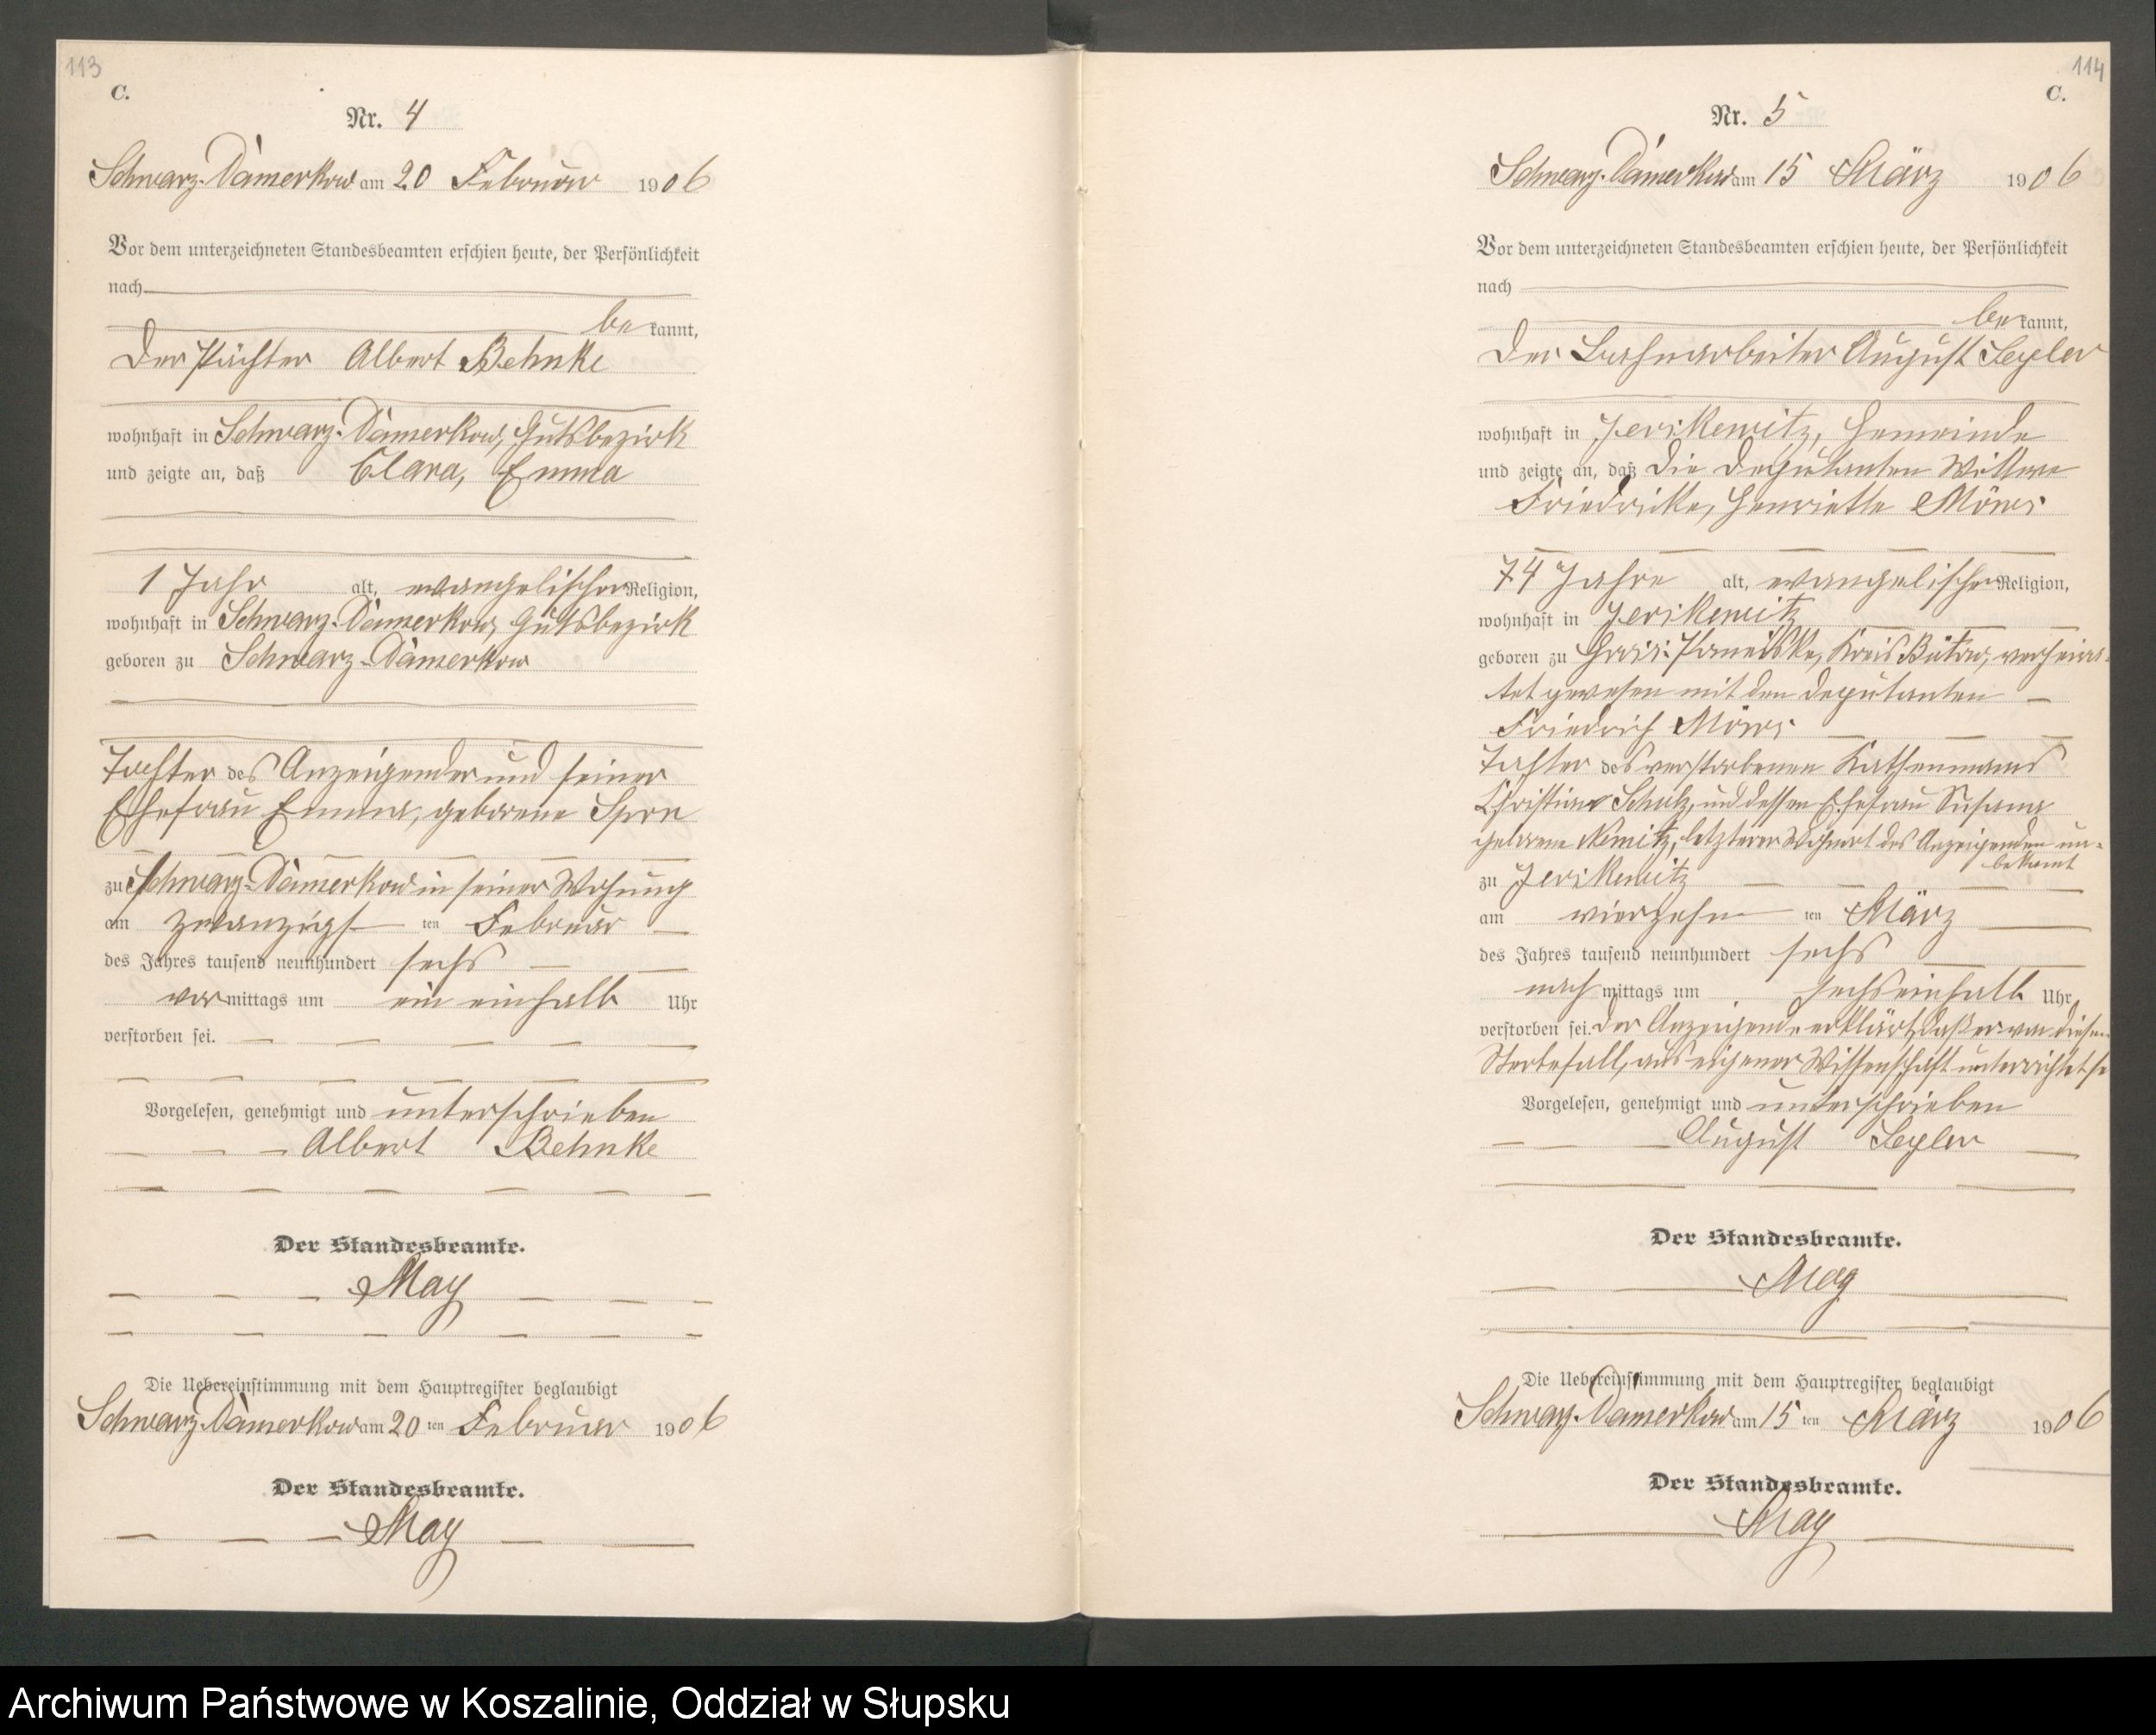 113
C.
Nr. 4
Schwarz-Damerkow am 20 Februar 1906
Vor dem unterzeichneten Standesbeamten erschien heute, der Persönlichkeit
nach
be kannt,
Der Pächter Albert Behnke
wohnhaft in Schwarz-Damerkow, Gutsbezirk
und zeigte an, daß Clara, Emma
1 Jahr alt, evangelischer Religion,
wohnhaft in Schwarz-Damerkow, Gutsbezirk
geboren zu Schwarz-Damerkow
Tochter des Anzeigender und seiner
Ehefrau Emma, geborene
zu Schwarz-Damerkow in seiner Wohnung
am zwanzigst ten Februar
des Jahres tausend neunhundert sechs
vor mittags um ein einhalb Uhr
verstorben sei.
Vorgelesen, genehmigt und unterschrieben
Albert Behnke
Der Standesbeamte.
May
Die Uebereinstimmung mit dem Hauptregister beglaubigt
Schwarz-Damerkow am 20 ten Februar 1906
Der Standesbeamte.
May
114
C.
Nr. 5
Schwarz-Damerkow am 15 März 1906
Vor dem unterzeichneten Standesbeamten erschien heute, der Persönlichkeit
nach
be kannt,
Der August
wohnhaft in Jerskewitz, Gemeinde
und zeigte an, daß die Deputanten Wittwe
Friedricke, Henriette
74 Jahre alt, evangelischer Religion,
wohnhaft in Jerskewitz
geboren zu Kreis Bütow, verheira-
tet gewesen mit den Deputanten
Friedrich
Tochter des verstorbenen Kathenmanns
Christian Schulz, und dessen Ehefrau
geborene Nemitz, letzterer Wohnort des Anzeigenden un-
bekannt
zu Jerskewitz
am vierzehn ten März
des Jahres tausend neunhundert sechs
nach mittags um sechseinhalb Uhr
verstorben sei. Der Anzeigende erklärt, daß er von diesen
Sterbefall, aus eigener Wissenschaft unterrichtet se
Vorgelesen, genehmigt und unterschrieben
August
Der Standesbeamte.
May
Die Uebereinstimmung mit dem Hauptregister beglaubigt
Schwarz-Damerkow am 15 ten März 1906
Der Standesbeamte.
May
Archiwum Państwowe w Koszalinie, Oddział w Słupsku